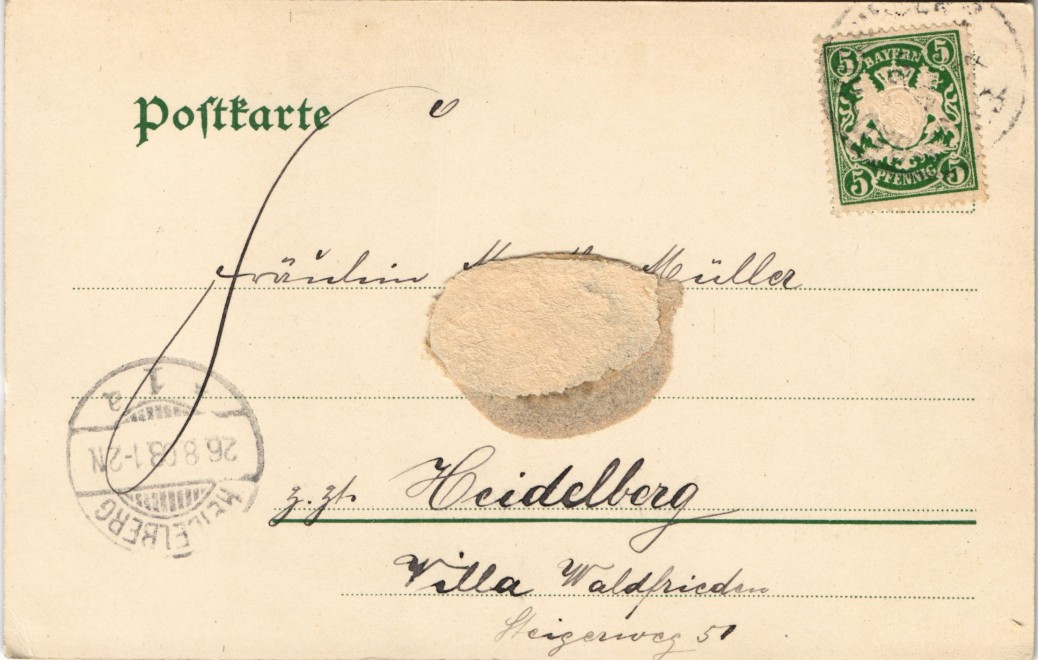 Postkarte
5 BAYERN 5
5 PFENNIG 5
Fräulein Müller
1 a
26.8.03.1-2N
HEIDELBERG
z. Zt. Heidelberg
Villa Waldfrieden
Steigerweg 51